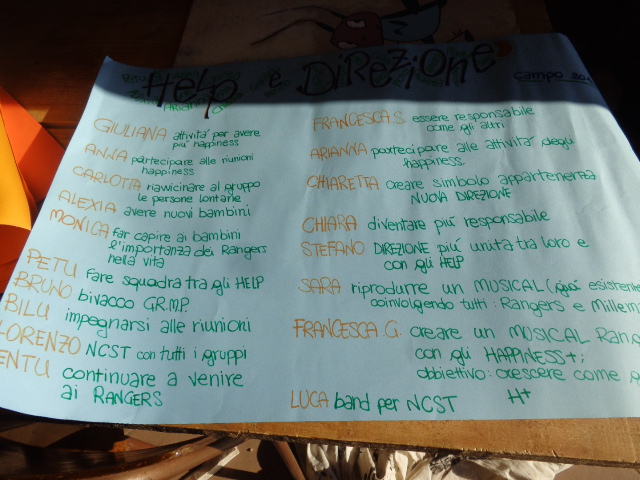 HELP e DIREZIONE
GIULIANA attività per avere
più happiness
ANNA partecipare alle riunioni
happiness
CARLOTTA riavvicinare al gruppo
le persone lontane
ALEXIA avere nuovi bambini
MONICA far capire ai bambini
l'importanza dei Rangers
nella vita
PETU fare squadra tra gli HELP
BRUNO bivacco GR.M.P.
BILU impegnarsi alle riunioni
LORENZO NCST con tutti i gruppi
ENTU continuare a venire
ai RANGERS
campo
FRANCESCA S. essere responsabile
come gli altri
ARIANNA partecipare alle attività degli
happiness
CHIARETTA creare simbolo appartenenza
NUOVA DIREZIONE
CHIARA diventare più responsabile
STEFANO DIREZIONE più unita tra loro e
con gli HELP
SARA riprodurre un MUSICAL (già esistente
coinvolgendo tutti: Rangers e Millem
FRANCESCA G. creare un MUSICAL Rang
con gli HAPPINESS+;
obbiettivo: crescere come
H+
LUCA band per NCST